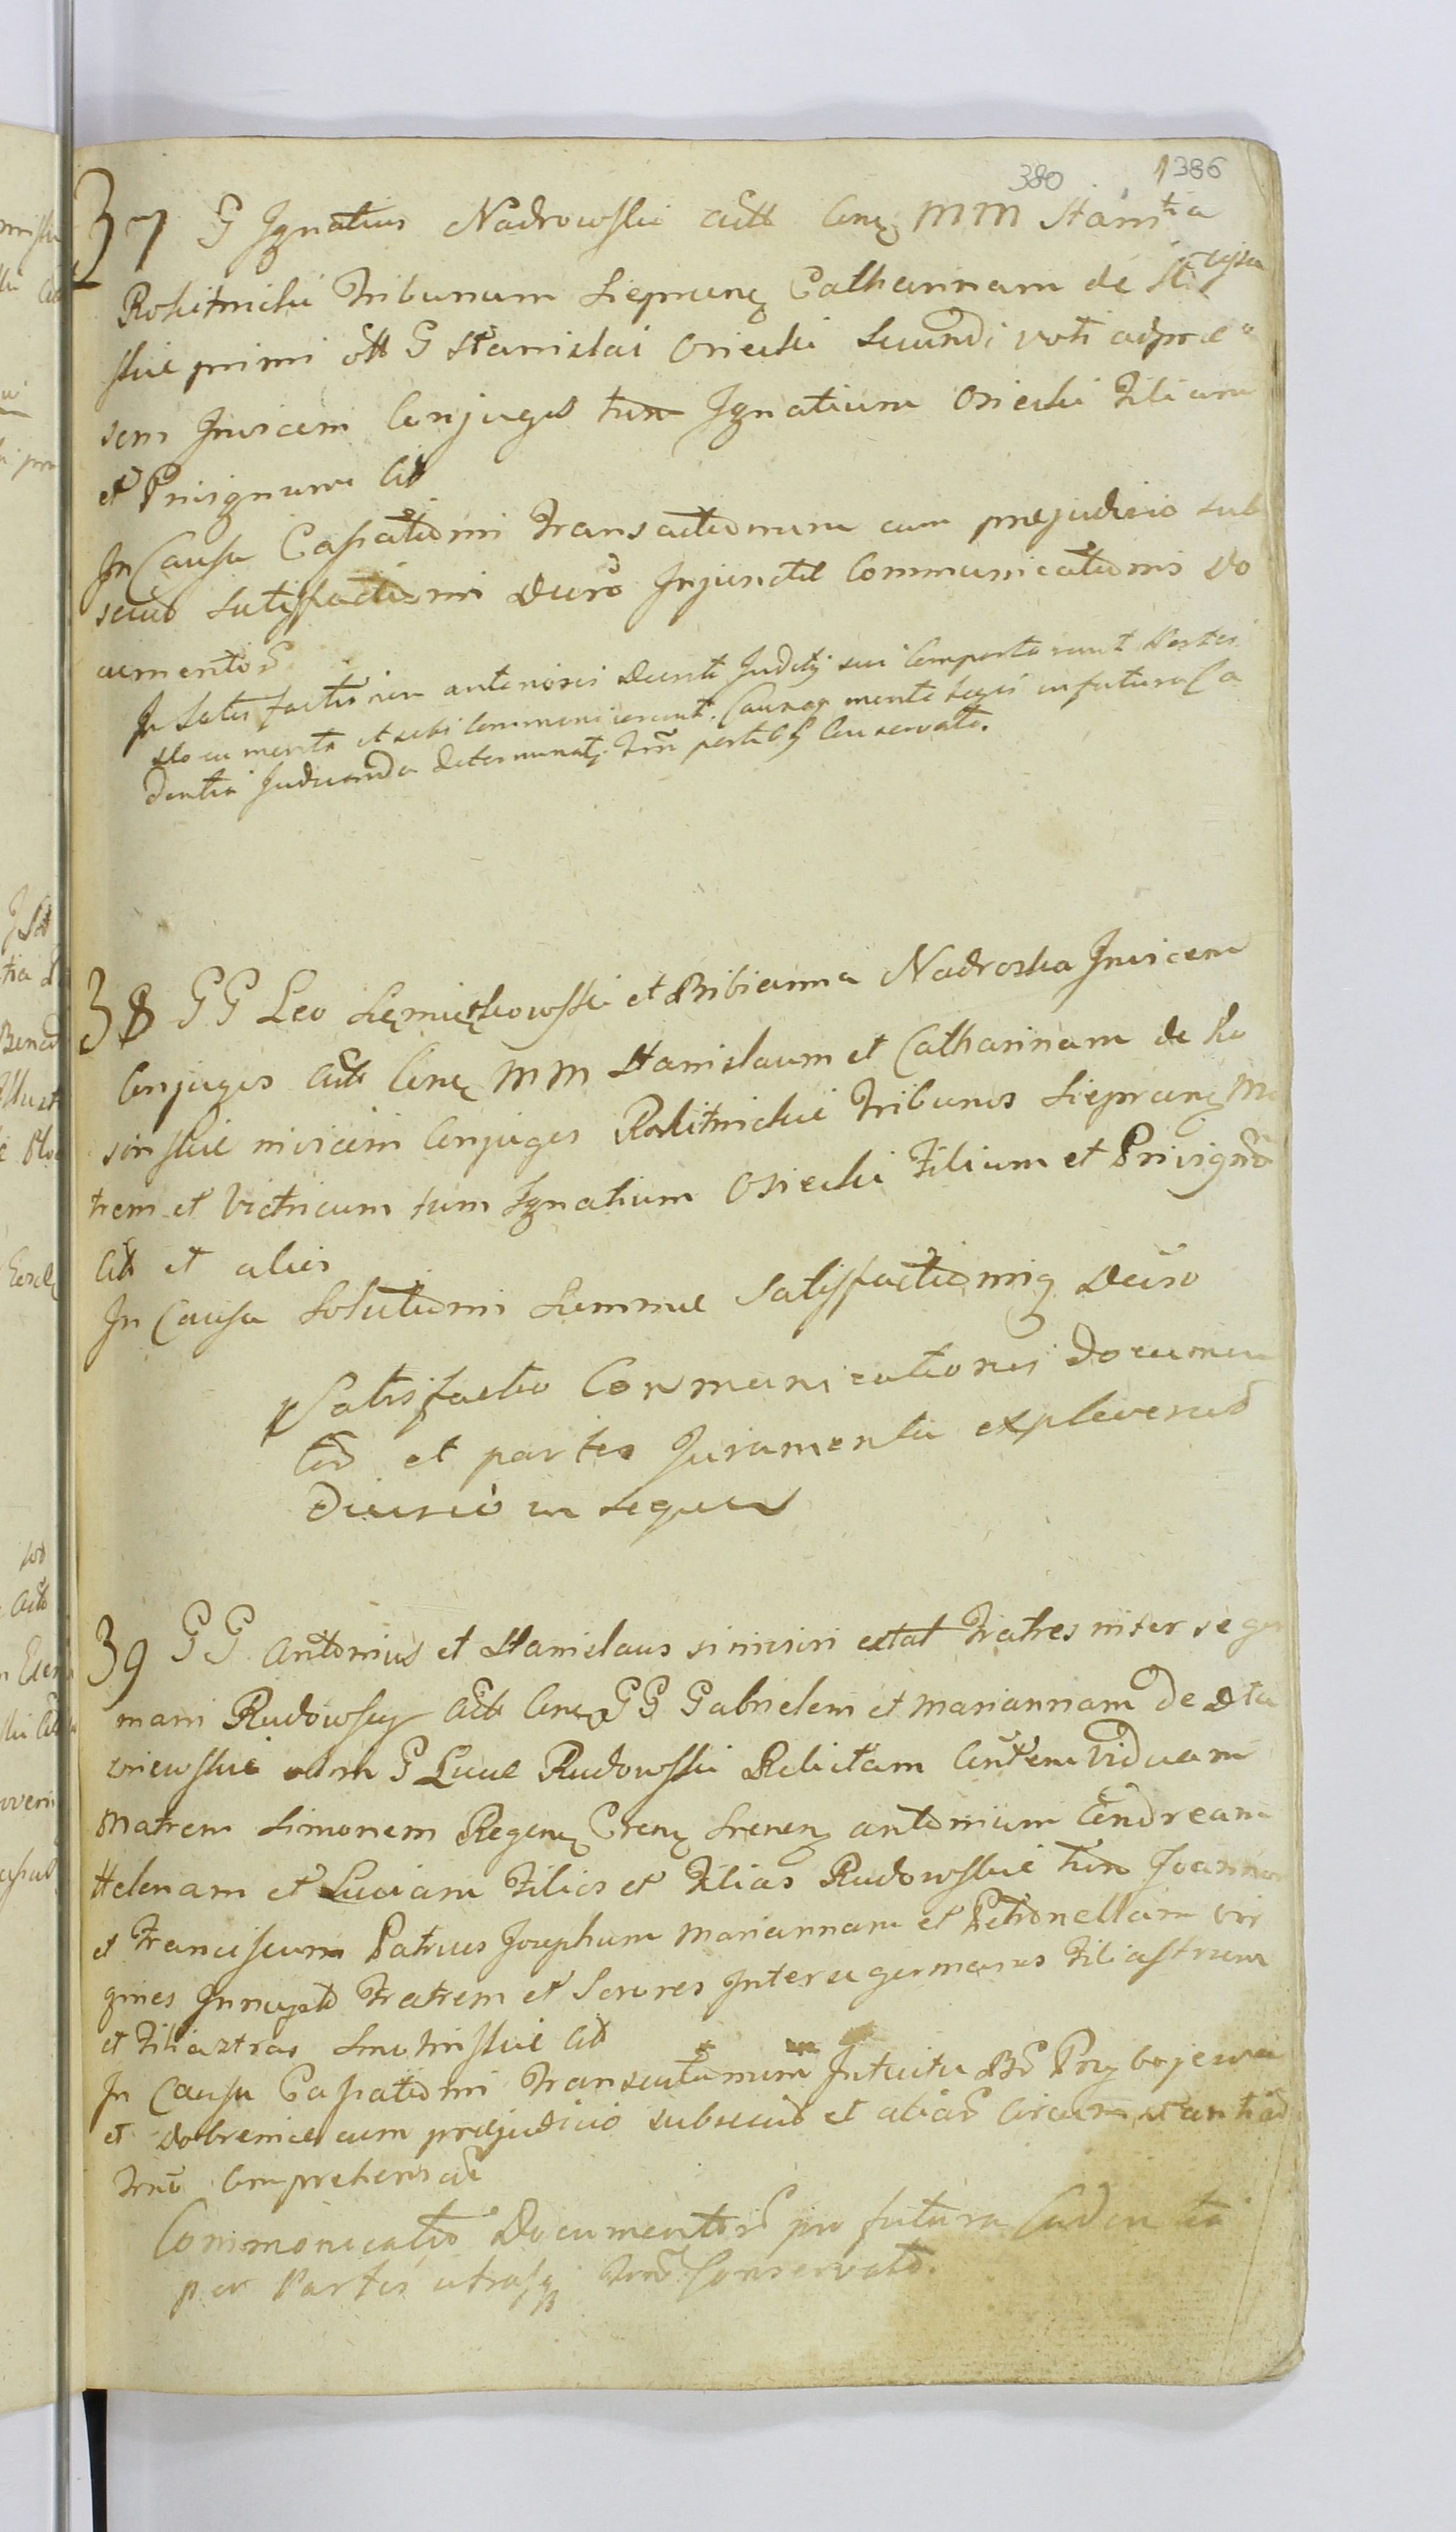 380 1386
37 G Ignatius Nadrowski actt Cenę MM Stanis
Rokitnicki Tribunum Sieprcenę Catharinam de
skie primi ott G Stanislai Osiecki Secundi voti adprae
sens Invicem Conjuges tum Ignatium Osiecki Filium
et Privignum Citt
In Causa Cassationis Transactionum cum prejudicio sub
secut Satisfactionis Decreto Injunctae Communicationis Do
cumentor
In Satisfactionem anterioris Decreti Judicÿ sui Comportarunt Partes
documenta et sibi Communicarunt. Causaq mente Legis in futura Ca
dentia Judicanda determinatę. Trm partibq Conservato.
38 GG Leo Sięmiątkowski et Bibianna Nadroska Invicem
Conjuges actt Cenę MM Stanislaum et Catharinam de Ko
sinskie invicem Conjuges Rokitnickie Tribunos Sieprcenę Ma
trem et Victricum tum Ignatium Osiecki Filium et Privignum
Citt et alios
In Causa Solutionis Summae Satisfactionisq Decreto
Satisfactio Communicationis Documen
tor et partes Juramenta expleverunt
Divisio in sequen
39 GG Antonius et Stanislaus siniiori extat Fratres inter se ger
mani Rudowscy actt Cenę GG Gabrielem et Mariannam de
niewskie olim G Lucae Rudowski Relictam Viduam
Matrem Simonem Regenę Crenę Srenenę Antonium Andream
Helenam et Luciam Filios et Filias Rudowskie tum Joannem
et Franciscum Patruos Josephum Mariannam et Petronellam vir
gines Innuptas Fratrem et Sorores Inter se germanos Filiastrum
et Filiastras Smolinskie Citt
In Causa Cassationis Transactionum Intuitu Br Przybojewa
et Dobrenice cum prejudicio subsecut et aliar Circumstantiar
Trno Comprehensar
Communicatio Documentor pro futura Cadentia
per Partes utrasq Trno Conservato.